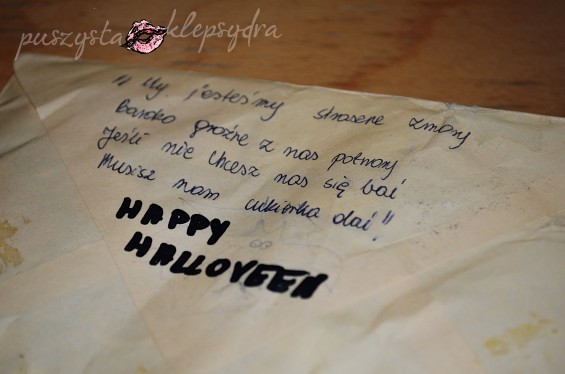 puszysta klepsydra
"My jesteśmy straszne zmory
Bardzo groźne z nas potwory
Jeśli nie chcesz nas się bać
Musisz nam cukierka dać!"
HAPPY
HALLOVEEN